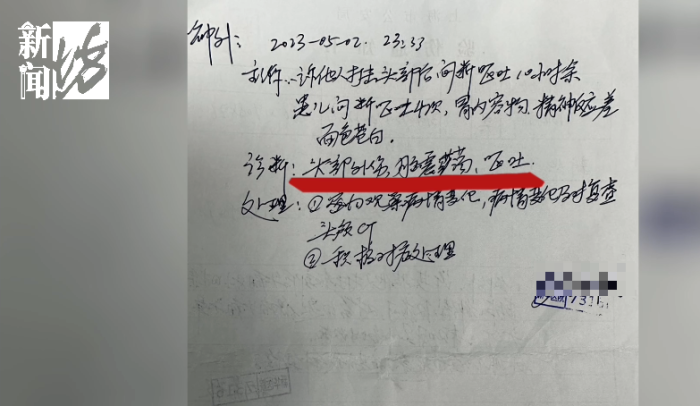 新闻坊
神外: 2023-05-02. 23:33
主诉: 诉他人打击头部后间断呕吐10小时余
患儿间断呕吐4次,胃内容物.精神反应差
面色苍白.
诊断: 头部外伤, 脑震荡, 呕吐.
处理: ①密切观察病情变化,病情变化及时复查
头颅CT
②积极对症处理